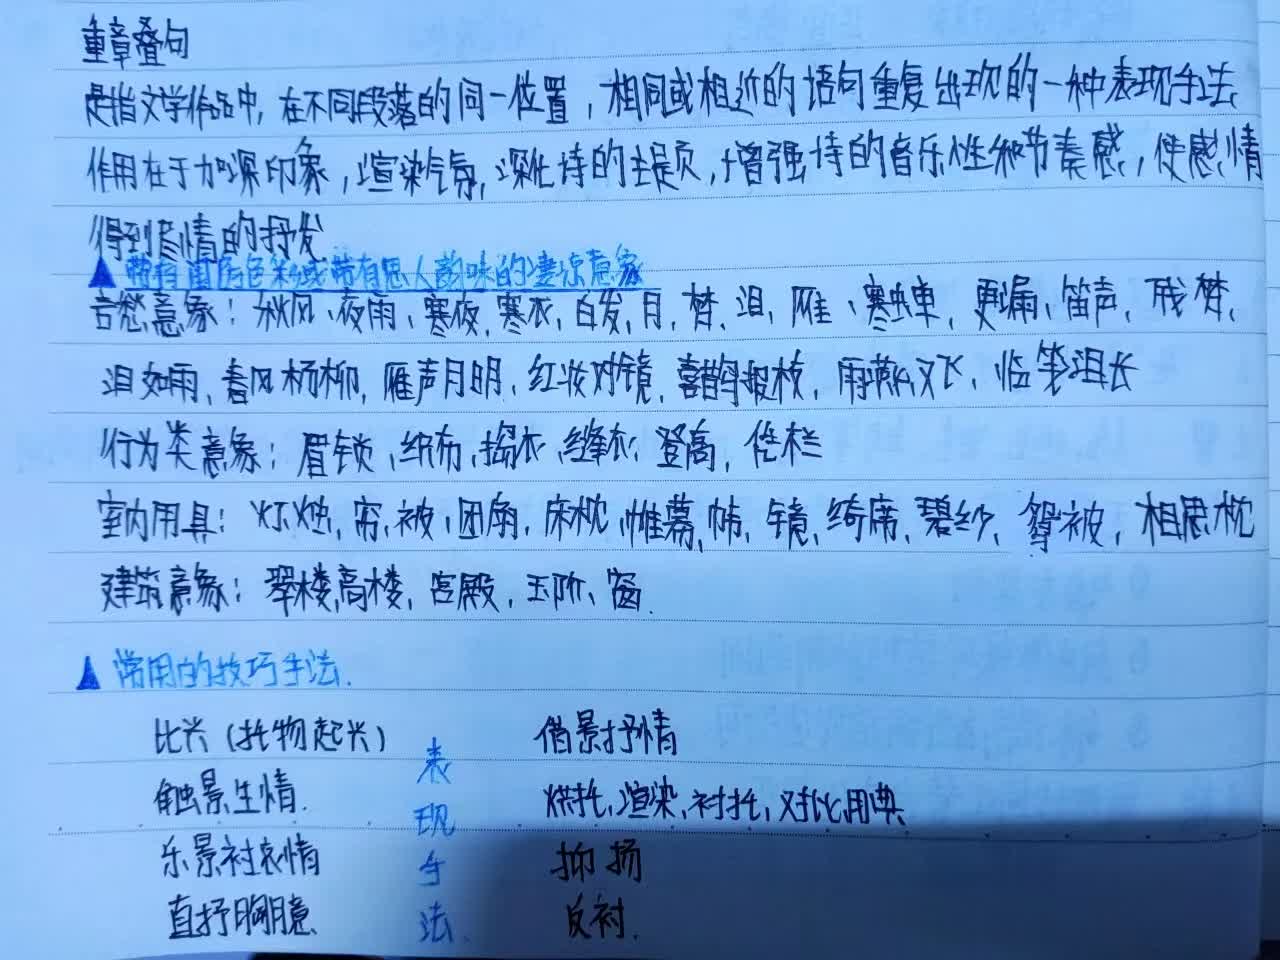 重章叠句
是指文学作品中，在不同段落的同一位置，相同或相近的语句重复出现的一种表现手法
作用在于加深印象，渲染气氛，深化诗的主题，增强诗的音乐性和节奏感，使感情
得到尽情的抒发
▲ 带有闺房色彩或带有思人韵味的凄凉意象
言愁意象：秋风、夜雨、寒夜、寒衣、白发、月、梦、泪、雁、寒蝉、更漏、笛声、残梦、
泪如雨、春风杨柳、雁声月明、红妆对镜、喜鹊报枝、雨燕双飞、临笺泪长
行为类意象：眉锁、织布、捣衣、缝衣、登高、倚栏
室内用具：灯烛、帘、被、团扇、床枕、帷幕、帏、镜、绮席、碧纱、鸳被、相思枕
建筑意象：翠楼、高楼、宫殿、玉阶、窗.
▲ 常用的技巧手法.
比兴（托物起兴） 借景抒情
触景生情. 烘托、渲染、衬托、对比、用典
乐景衬哀情 抑扬
直抒胸臆 反衬.
表
现
手
法.